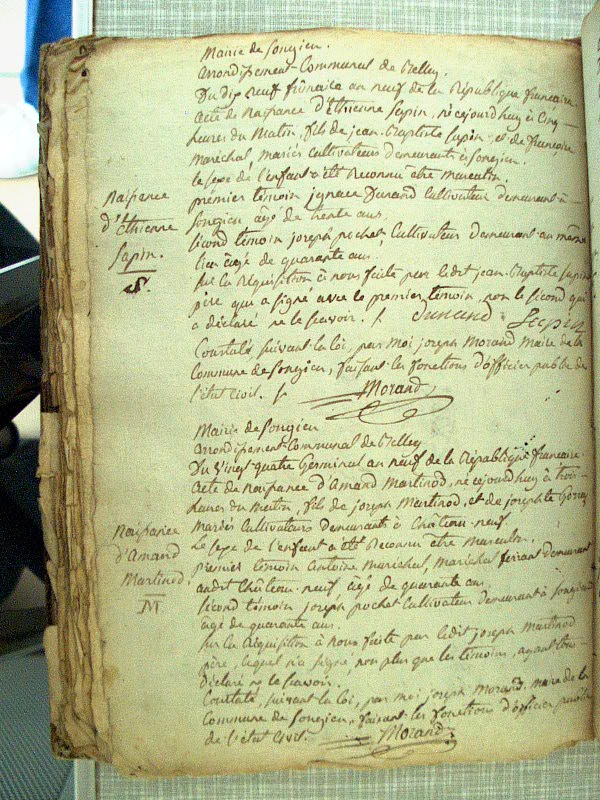 Mairie de Songieu.
Arrondissement Communal de Belley
Du dix neuf frimaire an neuf de la République francaise.
acte de Naissance D'Ethienne Sapin, né cejourd'huy à Cinq
heures du Matin, fils de jean-Baptiste Sapin, et de francoise
Maréchal, Mariés Cultivateurs demeurants à Songieu.
le sexe de l'enfant a été Reconnu être masculin.
premier témoin ignace Dunand Cultivateur demeurant à
Songieu agé de trente ans,
second témoin joseph pochet, Cultivateur Demeurant au même
lieu agé de quarante ans.
sur la Réquisition à nous faite par ledit jean-Baptiste Sapin
père qui a signé avec le premier témoin, non le second qui
a déclaré ne le scavoir. Dunand Sapin
Constaté, suivant la loi, par Moi joseph Morand Maire de la
Commune de Songieu, faisant les fonctions D'officier public de
l'état civil. Morand
Naissance
d'Ethienne
Sapin.
Mairie de Songieu
Arrondissement Communal de Belley
Du vingt quatre Germinal an neuf de la République francaise
acte de Naissance d'Amand Martinod, né cejourd'huy à trois
heures du Matin, fils de joseph Martinod, et de josephte
Mariés Cultivateurs demeurants à Château-neuf.
Le sexe de l'enfant a été Reconnu être masculin.
premier témoin Antoine Maréchal, Maréchal ferrant demeurant
audit Château-neuf agé de quarante ans.
second témoin joseph pochet Cultivateur demeurant à Songieu
agé de quarante ans.
sur la Réquisition à nous faite par ledit joseph Martinod
père, lequel n'a signé, non plus que les témoins, ayant tous
déclaré ne le scavoir.
Constaté, suivant la loi, par moi joseph Morand maire de la
Commune de Songieu, faisant les fonctions d'officier public
de l'état Civil. Morand
Naissance
d'Amand
Martinod.
M